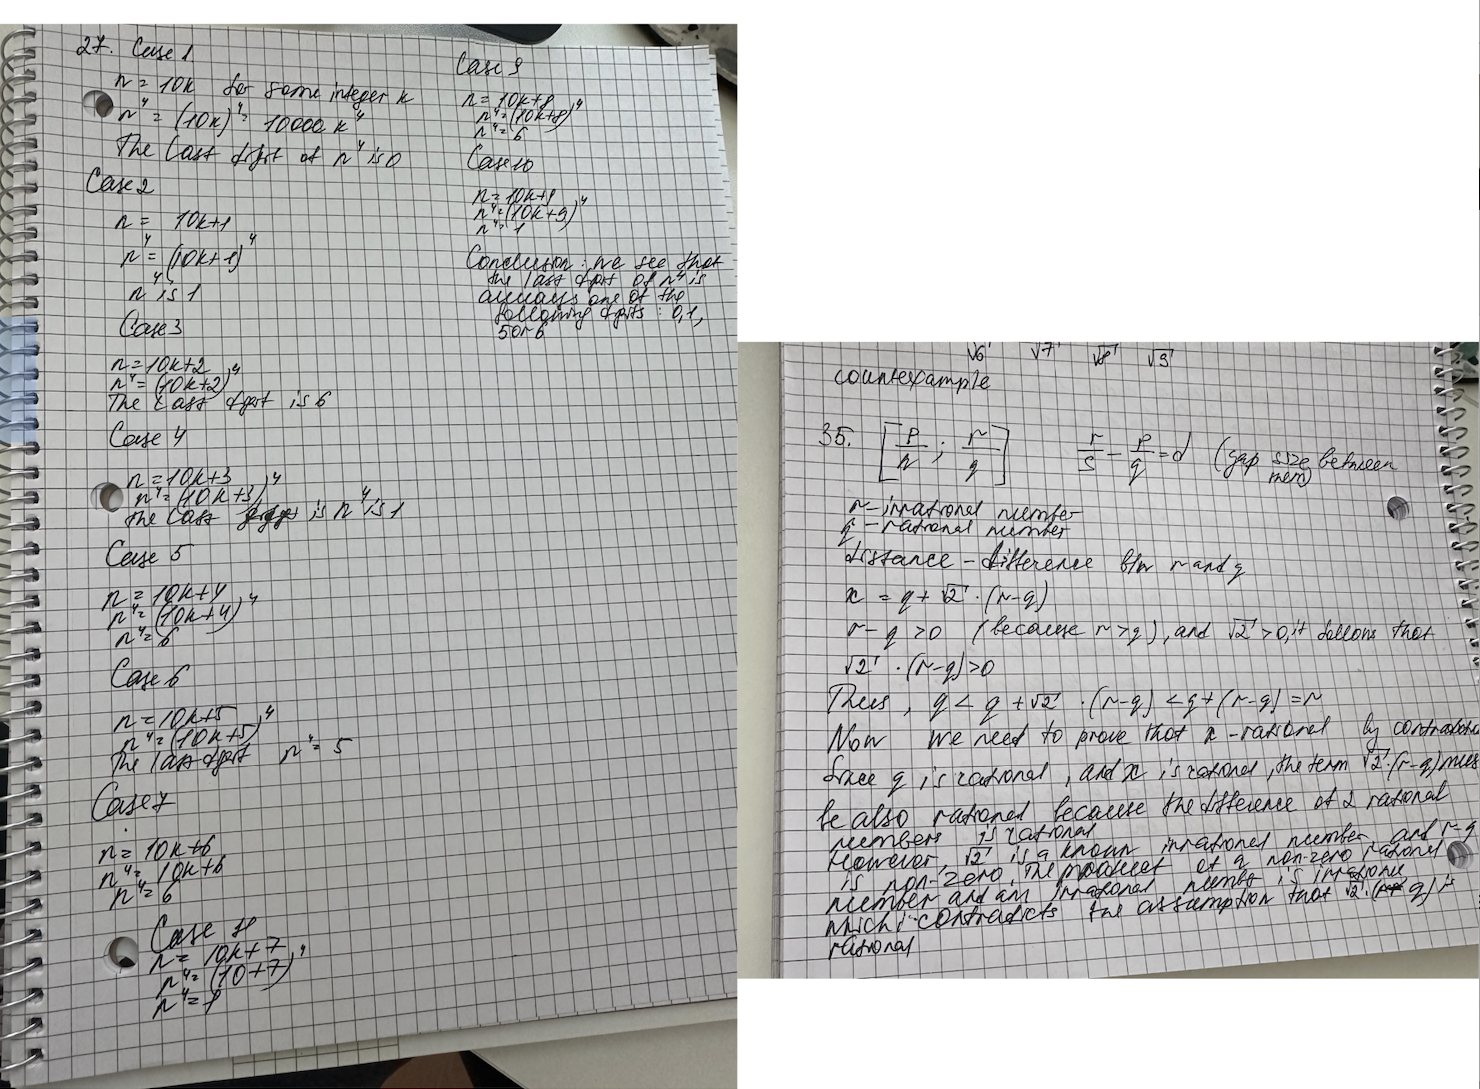 27. Case 1
n = 10k for some integer k
n⁴ = (10k)⁴ = 10000 k⁴
The last digit of n⁴ is 0
Case 2
n = 10k+1
n⁴ = (10k+1)⁴
n⁴ is 1
Case 3
n = 10k+2
n⁴ = (10k+2)⁴
The last digit is 6
Case 4
n = 10k+3
n⁴ = (10k+3)⁴
the last is n⁴ is 1
Case 5
n = 10k+4
n⁴ = (10k+4)⁴
n⁴ = 6
Case 6
n = 10k+5
n⁴ = (10k+5)⁴
The last digit n⁴ = 5
Case 7
n = 10k+6
n⁴ = 10k+6
n⁴ = 6
Case 8
n = 10k+7
n⁴ = (10+7)⁴
n⁴ = 1
Case 9
n = 10k+8
n⁴ = (10k+8)⁴
n⁴ = 6
Case 10
n = 10k+9
n⁴ = (10k+9)⁴
n⁴ = 1
Conclusion: we see that
the last digit of n⁴ is
always one of the
following digits: 0,1,
5 or 6
√6 √7 √8 √9
counterexample
35. [p/n ; r/q] r/s - p/q = d (gap size between
them)
r - irrational number
q - rational number
distance - difference btw r and q
x = q + √2 · (r-q)
r - q > 0 (because r > q), and √2 > 0, it follows that
√2 · (r-q) > 0
Thus, q < q + √2 · (r-q) < q + (r-q) = r
Now we need to prove that x - rational by
Since q is rational, and x is rational, the term √2·(r-q)
be also rational because the difference of 2 rational
numbers is rational
However, √2 is a known irrational number and r-q
is non-zero. The product of a non-zero rational
number and an irrational number is
which contradicts the assumption that √2 · ( q) is
rational